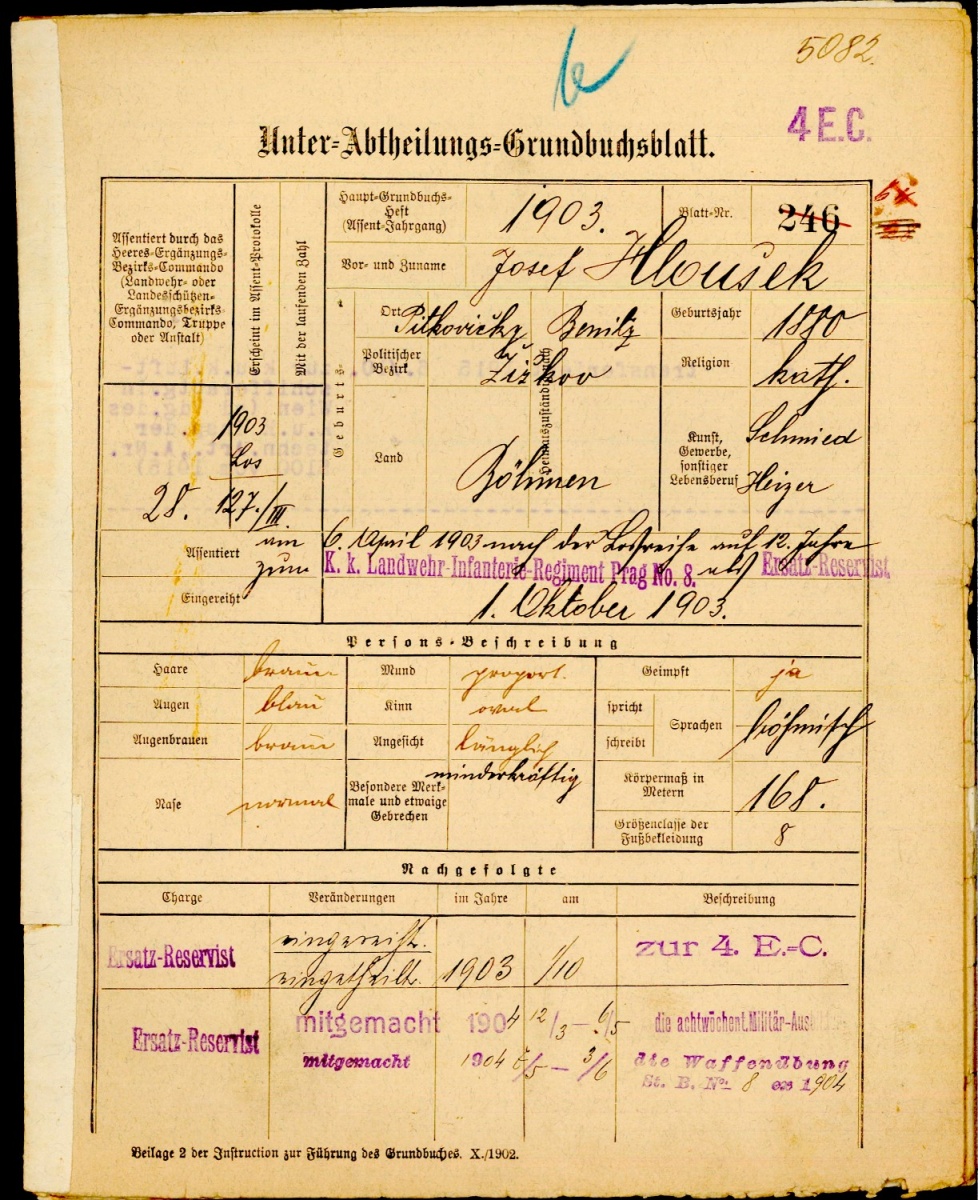 5082.
4 E.C.
Unter-Abtheilungs-Grundbuchsblatt.
Assentiert durch das
Heeres-Ergänzungs-
Bezirks-Commando
(Landwehr- oder
Landesschützen-
Ergänzungsbezirks-
Commando, Truppe
oder Anstalt)
Erscheint im Assent-Protokolle
Mit der laufenden Zahl
Haupt-Grundbuchs-
Heft
(Assent-Jahrgang)
1903.
Blatt-Nr.
246
Vor- und Zuname
Josef Hlousek
Geburts-
Ort
Pitkovičky Benitz
Geburtsjahr
1880
Politischer
Bezirk
Žižkov
Religion
kath.
Land
Böhmen
Kunst,
Gewerbe,
sonstiger
Lebensberuf
Schmied
Heizer
1903
Los
28. 127./III.
Assentiert
am 6. April 1903 nach der Losreihe auf 12. Jahre
zum K. k. Landwehr-Infanterie-Regiment Prag No. 8. als Ersatz-Reservist.
Eingereiht
1. Oktober 1903.
Persons-Beschreibung
Haare braun Mund proport. Geimpft ja
Augen blau Kinn oval spricht
schreibt
Sprachen
böhmisch
Augenbrauen braun Angesicht länglich
Nase normal
Besondere Merk-
male und etwaige
Gebrechen
minderkräftig
Körpermaß in
Metern
168.
Größenclasse der
Fußbekleidung
8
Nachgefolgte
Charge Veränderungen im Jahre am Beschreibung
Ersatz-Reservist eingereiht. zur 4. E.-C.
eingetheilt. 1903 1/10
Ersatz-Reservist mitgemacht 1904 12/3 – 6/5 die achtwöchent. Militär-Aus
mitgemacht 1904 – 3/6 die Waffenübung
St. B. No 8 ex 1904
Beilage 2 der Instruction zur Führung des Grundbuches. X./1902.